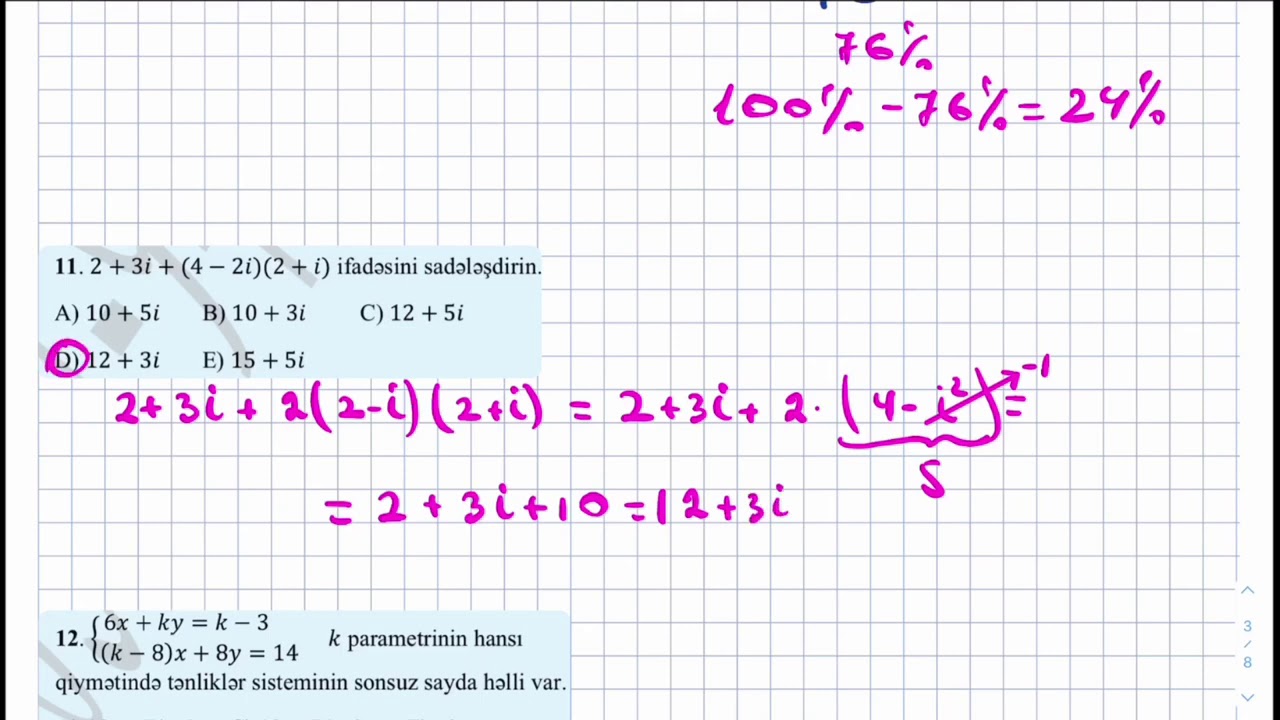 76%
100% - 76% = 24%
11. 2 + 3i + (4 − 2i)(2 + i) ifadəsini sadələşdirin.
A) 10 + 5i B) 10 + 3i C) 12 + 5i
D) 12 + 3i E) 15 + 5i
2+3i+2(2-i)(2+i) = 2+3i+2·(4-i²)=
-1
5
= 2+3i+10=12+3i
12. {6x + ky = k − 3
((k − 8)x + 8y = 14 k parametrinin hansı
qiymətində tənliklər sisteminin sonsuz sayda həlli var.
3
/
8